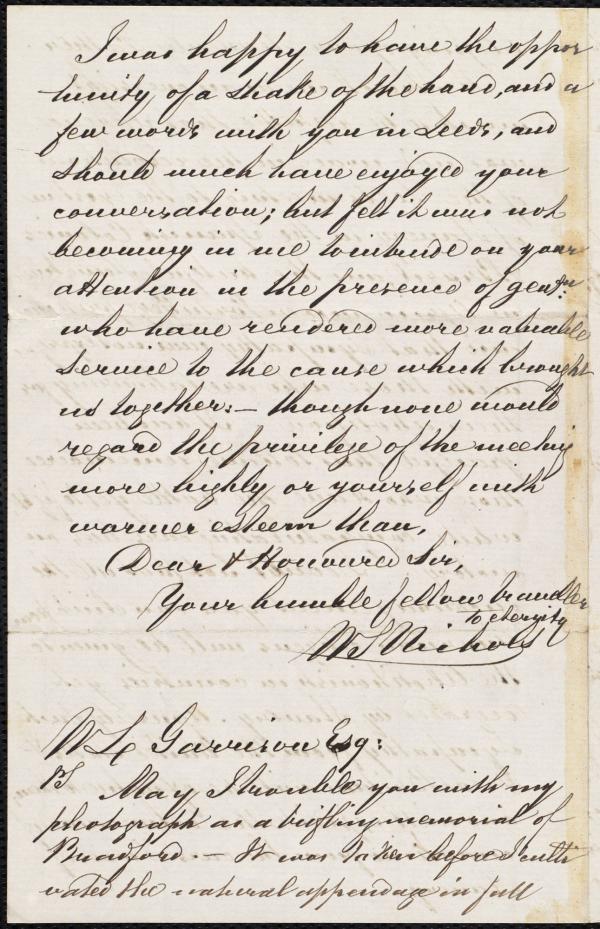 I was happy to have the oppor
tunity of a shake of the hand, and a
few words with you in Leeds, and
should much have enjoyed your
conversation; but felt it was not
becoming in me to intrude on your
attention in the presence of gentn:
who have rendered more valuable
service to the cause which brought
us together: — though none would
regard the privilege of the meeting
more highly or yourself with
warmer esteem than,
Dear & Honoured Sir,
Your humble fellow traveller
to eternity
W S Nichols
W L Garrison Esq:
PS May I trouble you with my
photograph as a trifling memorial of
Bradford. — It was taken before I culti
vated the natural appendage in full